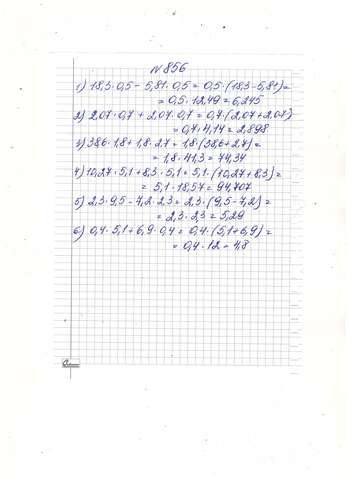 №856
1) 18,3 · 0,5 - 5,81 · 0,5 = 0,5 · (18,3 - 5,81) =
= 0,5 · 12,49 = 6,245
2) 2,07 · 0,7 + 2,07 · 0,7 = 0,7 · (2,07 + 2,07)
= 0,7 · 4,14 = 2,898
3) 38,6 · 1,8 + 1,8 · 2,7 = 1,8 · (38,6 + 2,7) =
= 1,8 · 41,3 = 74,34
4) 10,27 · 5,1 + 8,3 · 5,1 = 5,1 · (10,27 + 8,3) =
= 5,1 · 18,57 = 94,707
5) 2,3 · 9,5 - 7,2 · 2,3 = 2,3 · (9,5 - 7,2) =
= 2,3 · 2,3 = 5,29
6) 0,4 · 5,1 + 6,9 · 0,4 = 0,4 · (5,1 + 6,9) =
= 0,4 · 12 = 4,8